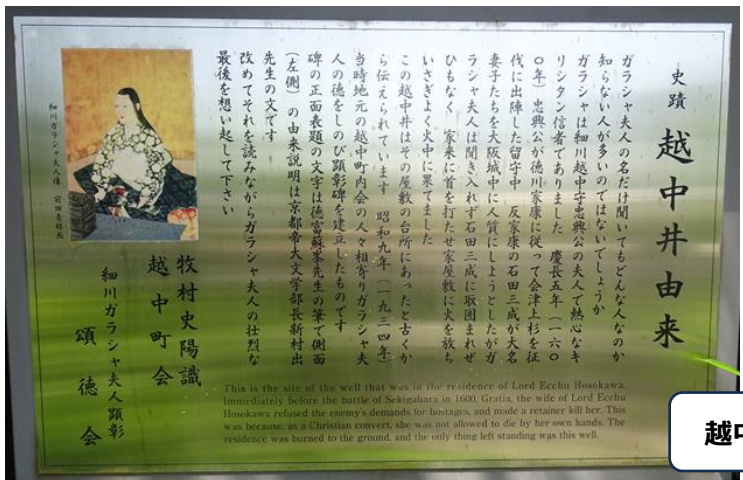 史蹟 越中井由来
ガラシャ夫人の名だけ聞いてもどんな人なのか
知らない人が多いのではないでしょうか
ガラシャは細川越中守忠興公の夫人で熱心なキ
リシタン信者でありました 慶長五年(一六〇
〇年)忠興公が徳川家康に従って会津上杉を征
伐に出陣した留守中 反家康の石田三成が大名
妻子たちを大阪城中に人質にしようとしたがガ
ラシャ夫人は聞き入れず石田三成に取囲まれぜ
ひもなく 家来に首を打たせ家屋敷に火を放ち
いさぎよく火中に果てました
この越中井はその屋敷の台所にあったと古くか
ら伝えられています 昭和九年(一九三四年)
当時地元の越中町内会の人々相寄りガラシャ夫
人の徳をしのび顕彰碑を建立したものです
碑の正面表題の文字は徳富蘇峯先生の筆で側面
(左側)の由来説明は京都帝大文学部長新村出
先生の文です
改めてそれを読みながらガラシャ夫人の壮烈な
最後を想い起して下さい
牧村史陽識
越中町会
細川ガラシャ夫人顕彰
頌徳会
細川ガラシャ夫人像 前田青邨画
This is the site of the well that was in the residence of Lord Ecchu Hosokawa.
Immediately before the battle of Sekigahara in 1600, Gratia, the wife of Lord Ecchu
Hosokawa refused the enemy's demands for hostages, and made a retainer kill her. This
was because, as a Christian convert, she was not allowed to die by her own hands. The
residence was burned to the ground, and the only thing left standing was this well.
越中